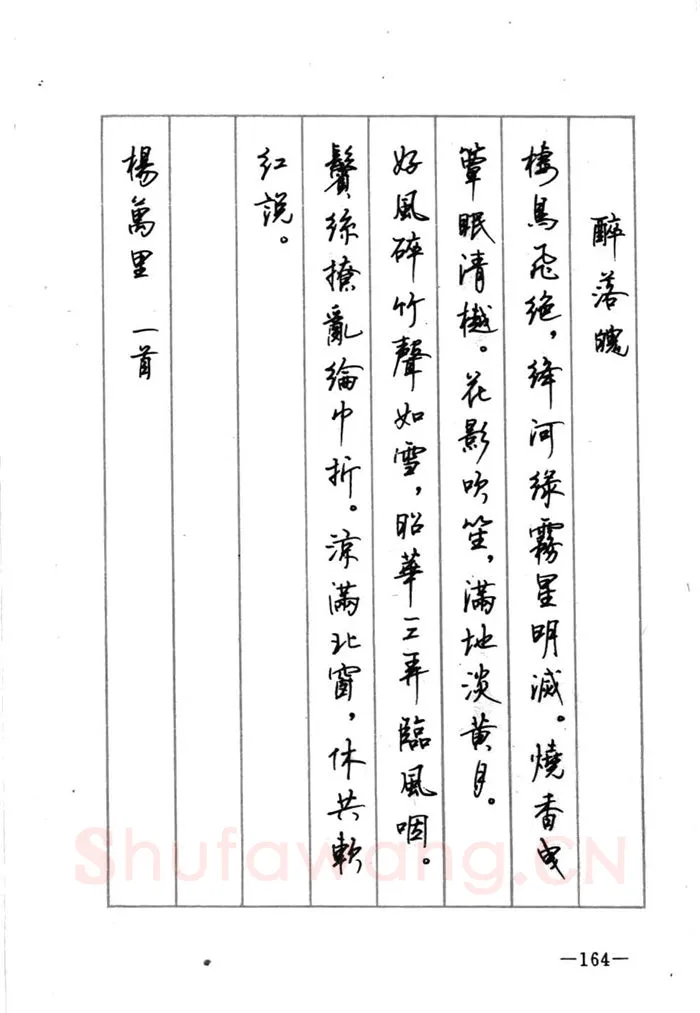 醉落魄
棲鳥飛絶，絳河緑霧星明滅。燒香曳
簟眠清樾。花影吹笙，滿地淡黄月。
好風碎竹聲如雪，昭華三弄臨風咽。
鬢絲撩亂綸巾折。涼滿北窗，休共軟
紅説。
楊萬里 一首
Shufawang.CN
—164—